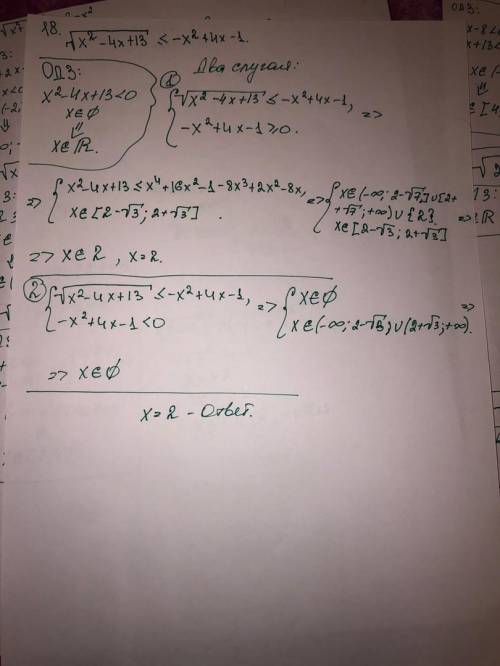 18. √(x²-4x+13) ≤ -x²+4x-1.
ОДЗ:
x²-4x+13<0
x∈∅
⇓
x∈ℝ.
Два случая:
① { √(x²-4x+13) ≤ -x²+4x-1, =>
-x²+4x-1≥0.
=> { x²-4x+13 ≤ x⁴+16x²-1-8x³+2x²-8x, => { x∈(-∞; 2-√7]∪[2+
+√7; +∞)∪{2} =>
x∈[2-√3; 2+√3].
x∈[2-√3; 2+√3]
=> x∈2, x=2.
② { √(x²-4x+13) ≤ -x²+4x-1, => { x∈∅ =>
-x²+4x-1<0
x∈(-∞; 2-√3)∪(2+√3; +∞).
=> x∈∅
x=2 - Ответ.